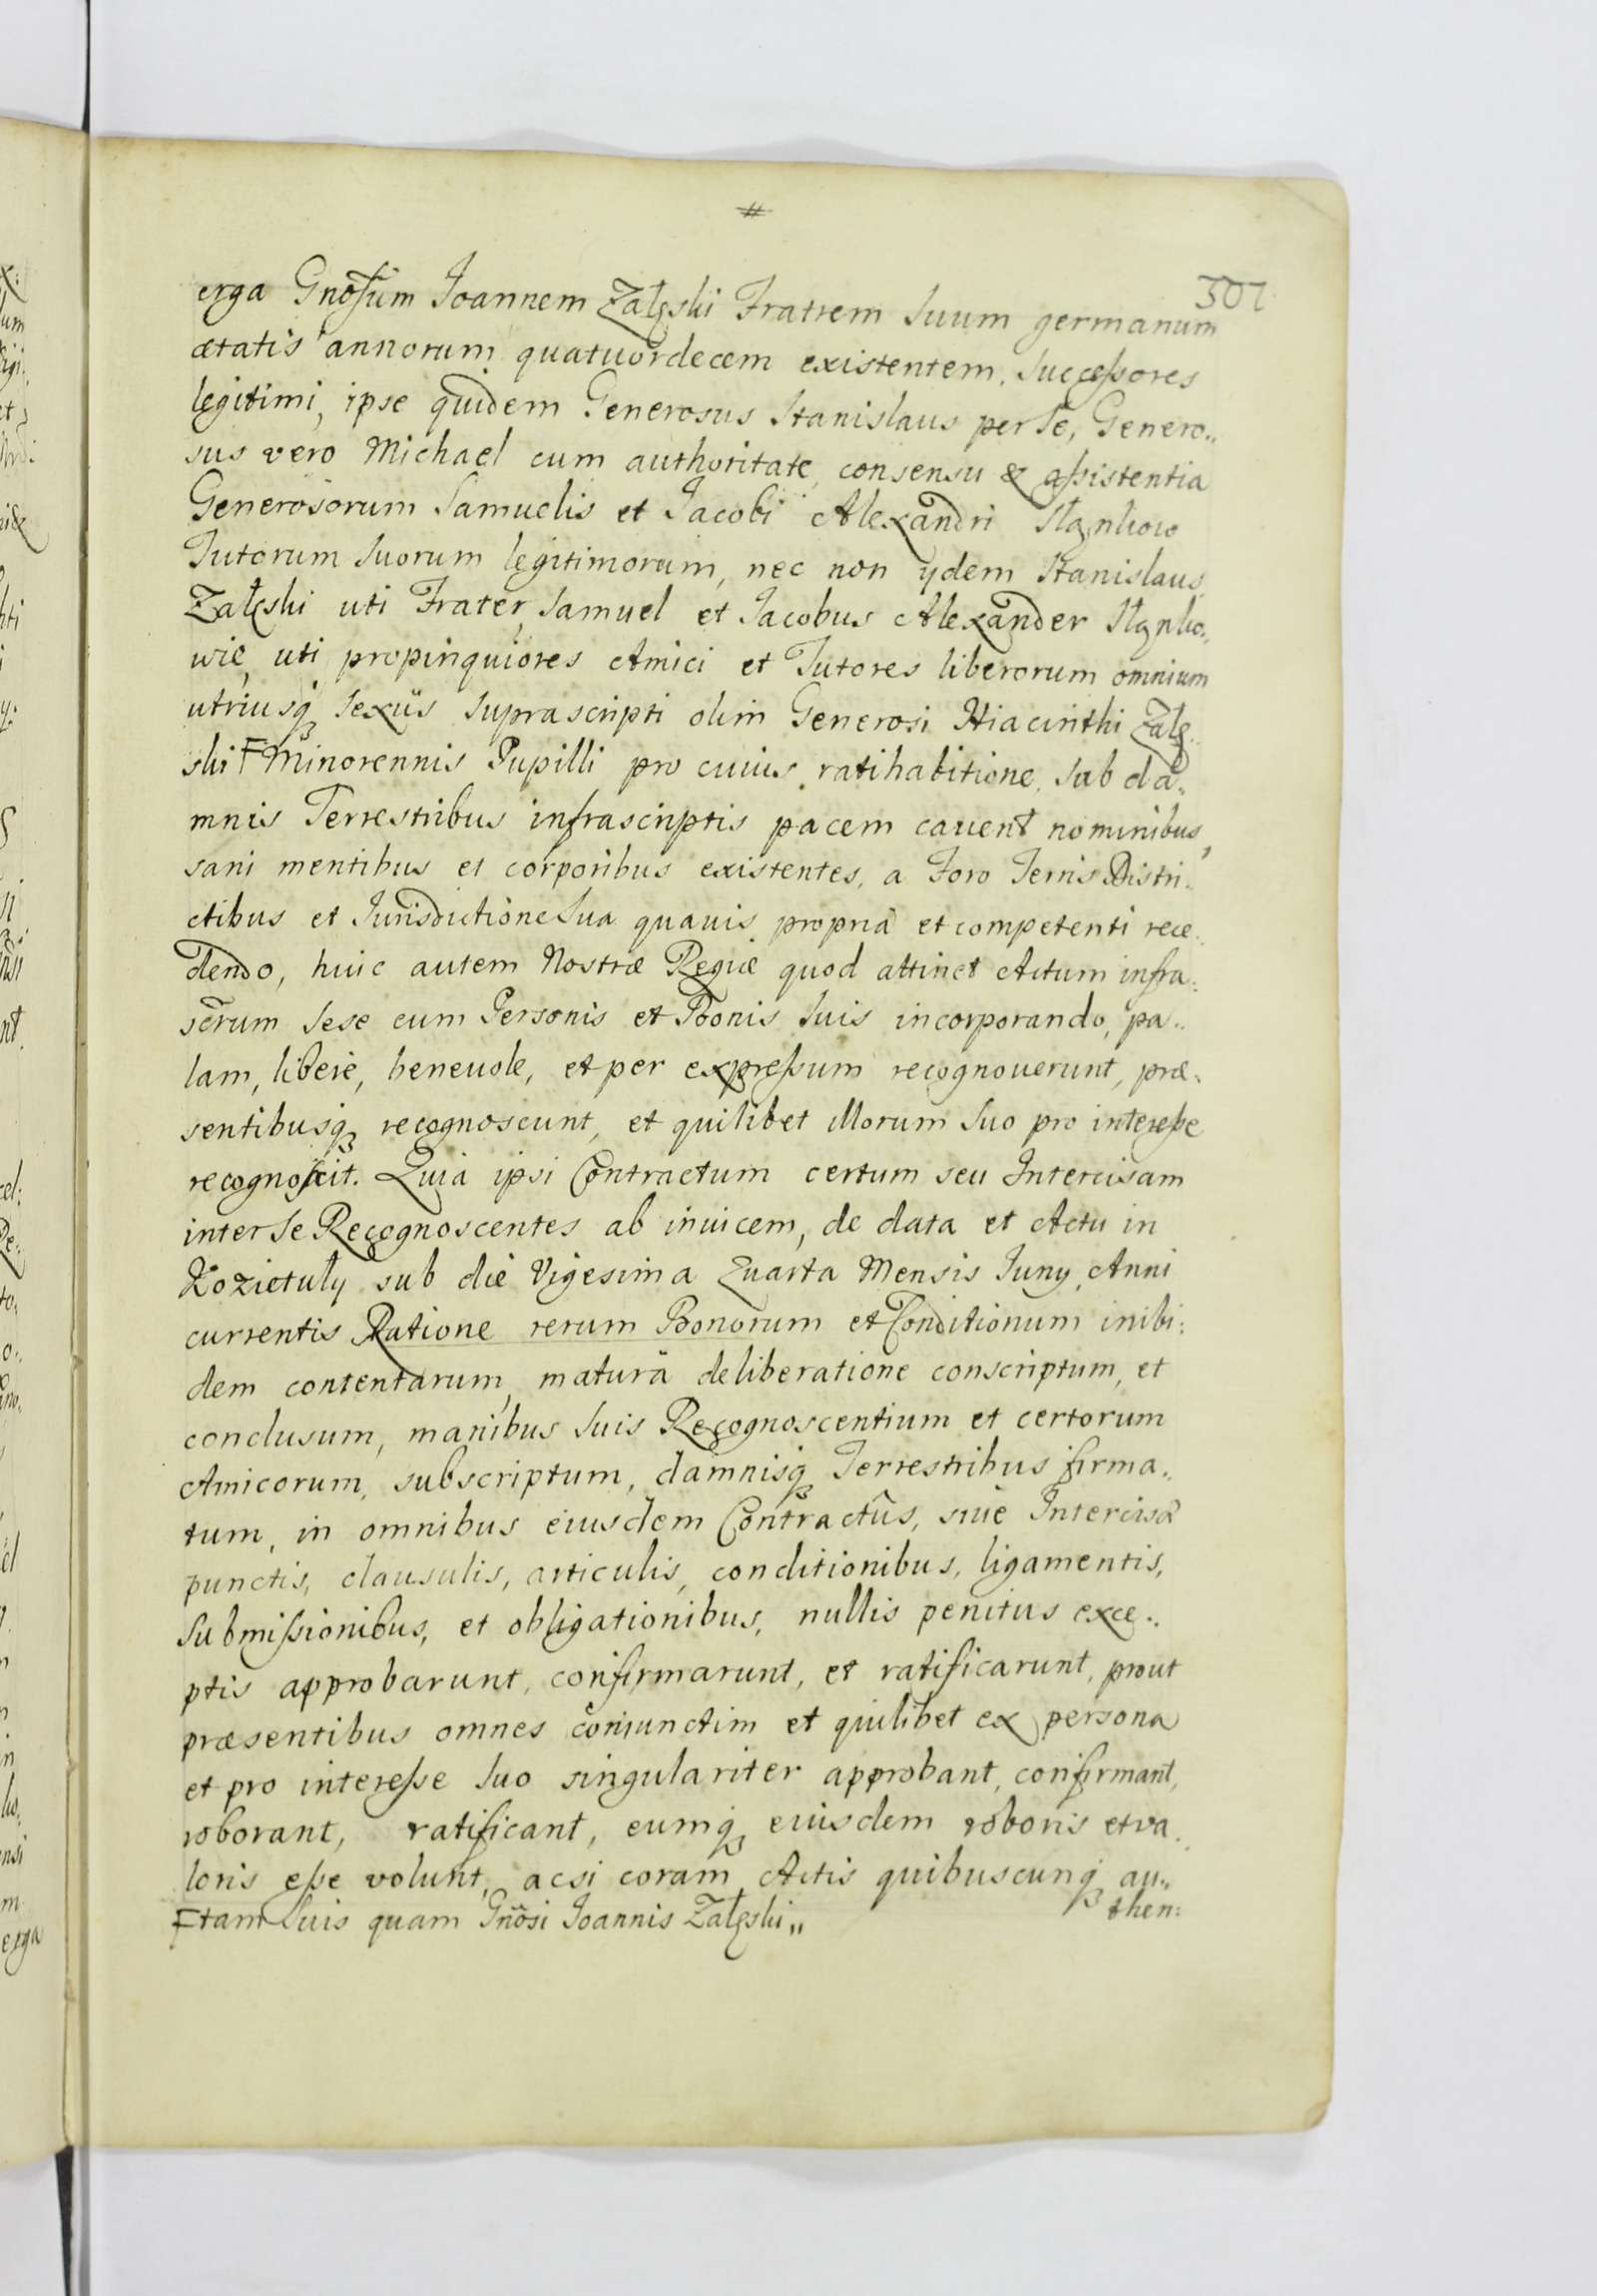 #
301
erga Gnosum Joannem Zalęski Fratrem Suum germanum
ætatis annorum quatuordecem existentem, Successores
legitimi, ipse quidem Generosus Stanislaus per Se, Genero„
sus vero Michael cum authoritate, consensu & assistentia
Generosorum Samuelis et Jacobi Alexandri
Tutorum Suorum legitimorum, nec non ydem Stanislaus
Zalęski uti Frater, Samuel et Jacobus Alexander
wie, uti propinquiores Amici et Tutores liberorum omnium
utriusq Sexus Suprascripti olim Generosi Hiacinthi Zalę„
ski F Minorennis Pupilli pro cuius ratihabitione, Sub da„
mnis Terrestribus infrascriptis pacem cauent nominibus,
sani mentibus et corporibus existentes, a Foro Terris Distri„
ctibus et Jurisdictione Sua quauis propria et competenti rece„
dendo, huic autem Nostræ Regiæ quod attinet Actum infra„
scrum Sese cum Personis et Bonis Suis incorporando, pa„
lam, libere, beneuole, et per expressum recognouerunt, præ„
sentibusq recognoscunt, et quilibet illorum Suo pro interesse
recognoscit. Quia ipsi Contractum certum seu Intercisam
inter Se Recognoscentes ab inuicem, de data et Actu in
Kozietuły sub die Vigesima Quarta Mensis Juny Anni
currentis Ratione rerum Bonorum et Conditionum inibi„
dem contentarum, matura deliberatione conscriptum, et
conclusum, manibus Suis Recognoscentium et certorum
Amicorum, subscriptum, damnisq Terrestribus firma„
tum, in omnibus eiusdem Contractus, siue Intercisæ
punctis, clausulis, articulis, conditionibus, ligamentis,
Submissionibus, et obligationibus, nullis penitus exce„
ptis approbarunt, confirmarunt, et ratificarunt, prout
præsentibus omnes coniunctim et quilibet ex persona
et pro interesse Suo singulariter approbant, confirmant,
roborant, ratificant, eumq eiusdem roboris et va„
loris esse volunt, acsi coram Actis quibuscunq au„
then:
F tam Suis quam Gnosi Joannis Zalęski„